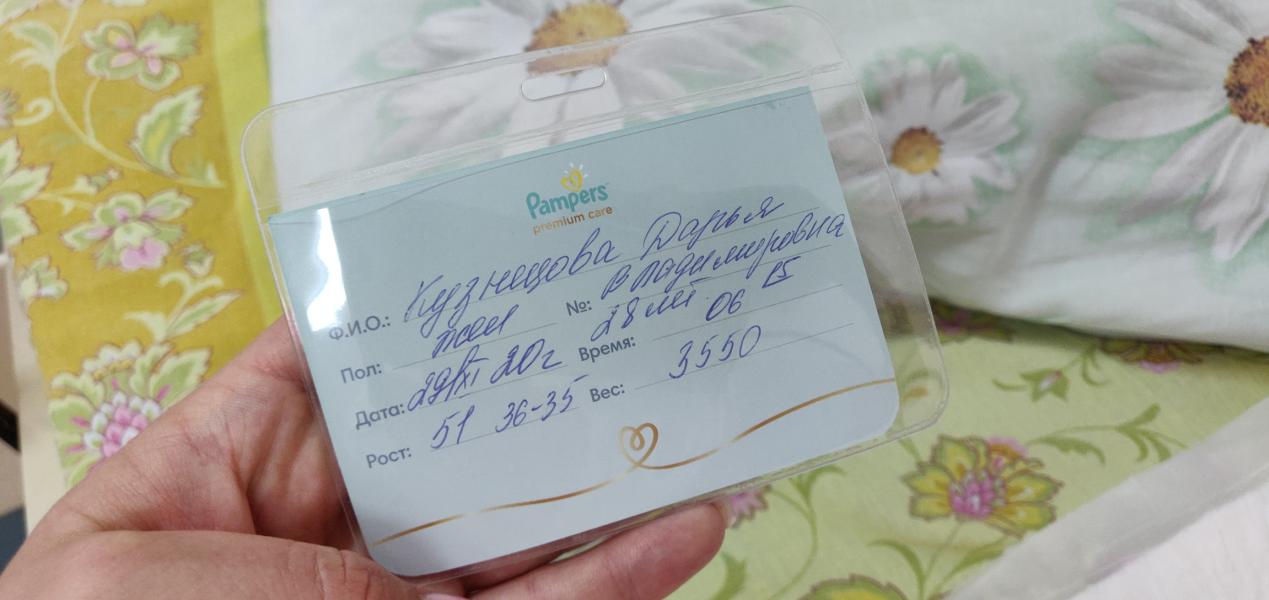 Pampers
premium care
Ф.И.О.: Кузнецова Дарья
Владимировна
Пол: жен №: 28 лет
Дата: 29/XI 20г Время: 06 15
Рост: 51 36-35 Вес: 3550